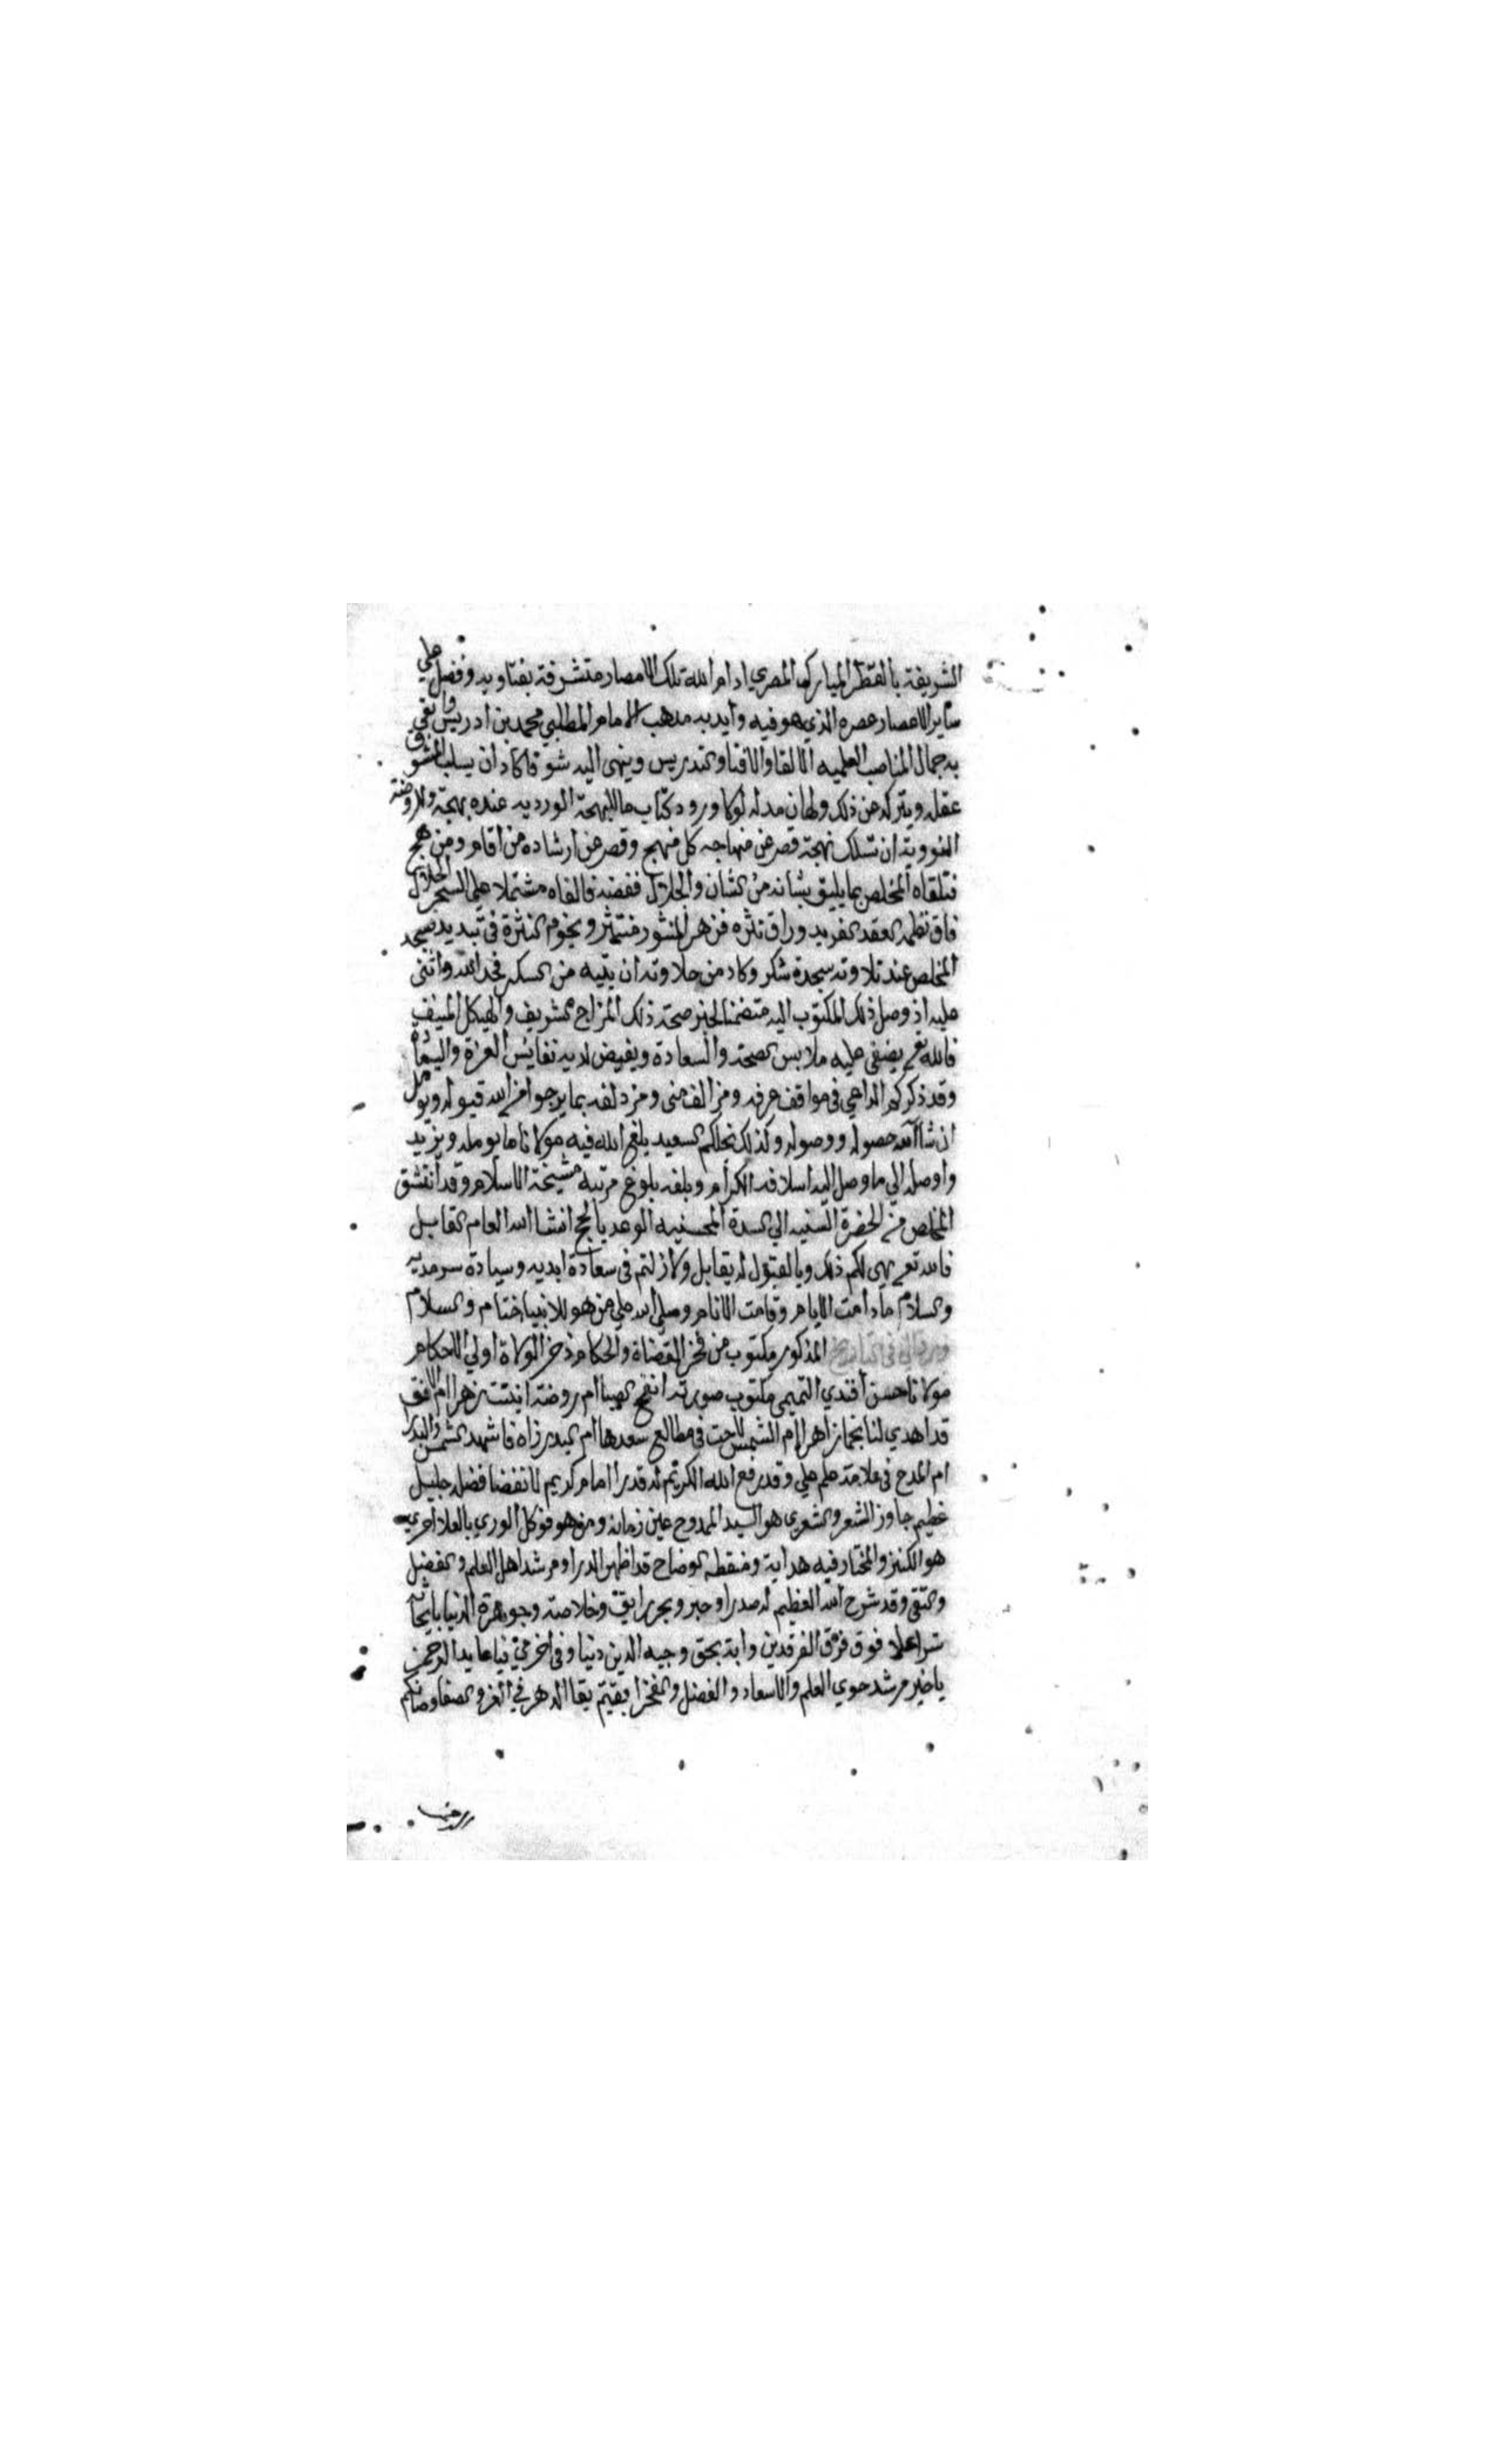 الشريفة بالقطر المبارك المصري ادام الله تلك الامصار متشرفة بفتاويه وفضل علي
ساير الاعصار عصره الذي هو فيه وايد به مذهب الامام المطلبي محمد بن ادريس وابقي
به جمال المناصب العلميه الالقا والافتا والتدريس وينهى اليه شوقا كاد ان يسلب المشوق
عقله ويتركه من ذلك ولهان مدله لولا ورود كتاب ما للبهجة الورديه عنده بهجة ولا روضة
النوويه ان تسلك نهجة قصر عن منهاجه كل منهج وقصر عن ارشاده من اقام ومن حج
فتلقاه المخلص بما يليق بشانه من الشان والجلال ففضه فالفاه مشتملا على السحر الحلال
فاق نظمه العقد الفريد وراق نثره فزهر المنثور منتثر ونجوم النثرة في تبديد سجد
المخلص عند تلاوته سجدة شكر وكاد من حلاوته ان يتيه من السكر فحمد الله واثنى
عليه اذ وصل ذلك المكتوب اليه متضمنا لخبر صحة ذلك المزاج الشريف والهيكل المنيف
فالله تعالى يضفي عليه ملابس الصحة والسعادة ويفيض لديه نفايس العزة والسيادة
وقد ذكركم الداعي في مواقف عرفه ومزالف منى ومزدلفه بما يرجو من الله قبوله ويومل
ان شا الله حصوله ووصوله وكذلك نجلكم السعيد بلغ الله فيه مولانا ما يومله ويزيد
واوصله الي ما وصل اليه اسلافه الكرام وبلغه بلوغ مرتبة مشيخة الاسلام وقد انتشق
المخلص من الحضرة السنيه الي السدة الوعد بالحج انشا الله العام القابل
فالله تعالى يهي لكم ذلك وبالقبول له يقابل ولا زلتم في سعادة ابديه وسيادة سرمديه
والسلام ما دامت الايام وقامت الانام وصلى الله علي من هو للانبيا ختام والسلام
وورد الي في التاريخ المذكور مكتوب من فخر القضاة والحكام ذخر الولاة اولي الاحكام
مولانا حسن افندي التميمي مكتوب صورته انفح الصبا ام روضة انبتت زهرا ام الافق
قد اهدي لنا نجما زاهرا ام الشمس لاحت في مطالع سعدها ام البدر زاه فاشهد الشمس والبدرا
ام المدح في علامة علم علي وقد رفع الله الكريم له قدرا امام كريم فضله جليل
عظيم جاوز الشعر والشعرى هو السيد الممدوح عين زمانه ومن هو فوق كل الوري بالعلا احري
هو الكنز والمختار فيه هداية ومنطقه الوضاح قد اظهر الدرا ومرشد اهل العلم والفضل
والتقى وقد شرح الله العظيم له صدرا وحبر وبحر رايق وخلاصة وجوهرة الدنيا
علا فوق فرق الفرقدين وانه بحق وجيه الدين دنيا وفي اخرى فيا عابد الرحمن
يا خير مرشد حوي العلم والاسعاد والفضل والفخرا بقيتم بقا الدهر في العز والصفا وصانكم